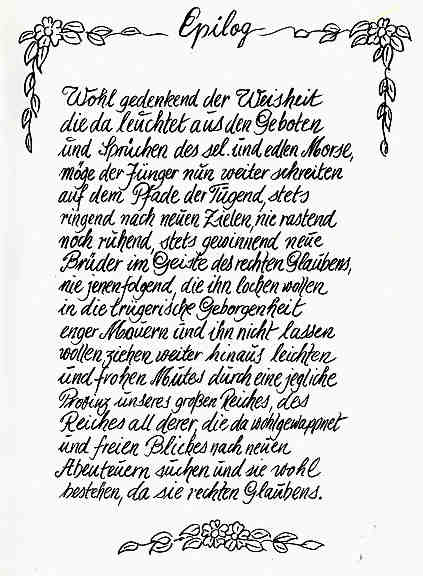 Epilog
Wohl gedenkend der Weisheit
die da leuchtet aus den Geboten
und Sprüchen des sel. und edlen Morse,
möge der Jünger nun weiter schreiten
auf dem Pfade der Tugend, stets
ringend nach neuen Zielen, nie rastend
noch ruhend, stets gewinnend neue
Brüder im Geiste des rechten Glaubens,
nie jenen folgend, die ihn locken wollen
in die trügerische Geborgenheit
enger Mauern und ihn nicht lassen
wollen ziehen weiter hinaus leichten
und frohen Mutes durch eine jegliche
Provinz unseres großen Reiches, des
Reiches all derer, die da wohlgewappnet
und freien Blickes nach neuen
Abenteuern suchen und sie wohl
bestehen, da sie rechten Glaubens.